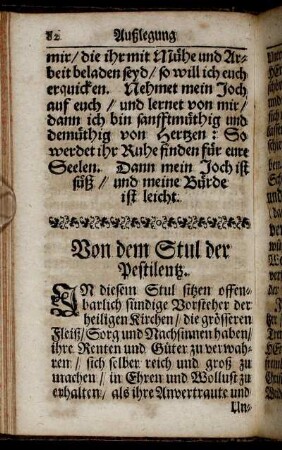 82 Außlegung
mir/ die ihr mit Mühe und Ar-
beit beladen seyd/ so will ich euch
erquicken. Nehmet mein Joch
auf euch/ und lernet von mir/
dann ich bin sanfftmüthig und
demüthig von Hertzen: So
werdet ihr Ruhe finden für eure
Seelen. Dann mein Joch ist
süß/ und meine Bürde
ist leicht.
Von dem Stul der
Pestilentz.
IN diesem Stul sitzen offen-
barlich sündige Vorsteher der
heiligen Kirchen/ die grösseren
Fleiß/ Sorg und Nachsinnen haben/
ihre Renten und Güter zu verwah-
ren/ sich selber reich und groß zu
machen/ in Ehren und Wollust zu
erhalten/ als ihre Anvertraute und
Un-